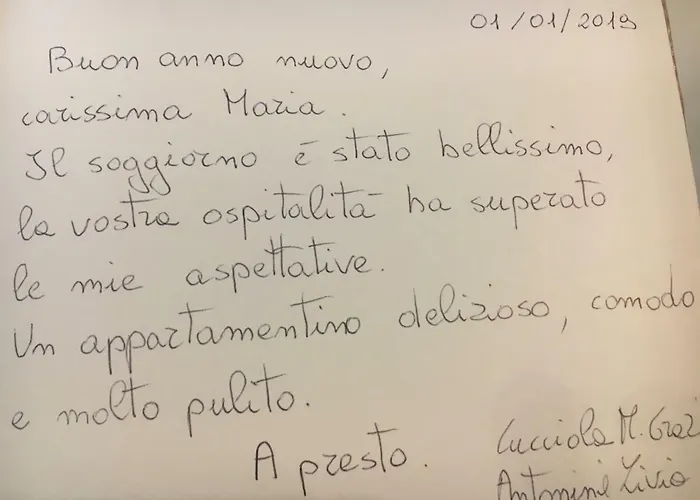 01/01/2019
Buon anno nuovo,
carissima Maria.
Il soggiorno è stato bellissimo,
la vostra ospitalità ha superato
le mie aspettative.
Un appartamentino delizioso, comodo
e molto pulito.
A presto.
Lucciola M. Graz
Antonini Livio